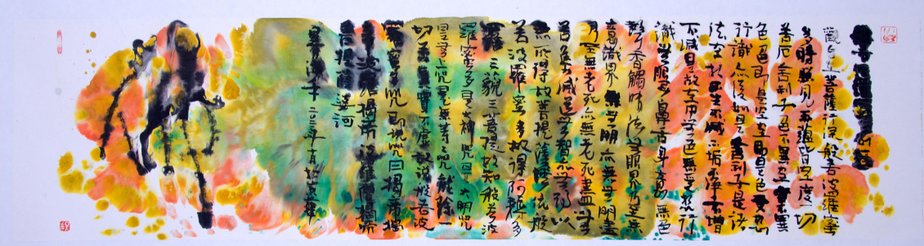 觀自在菩薩行深般若波羅蜜
多時照見五蘊皆空度一切
苦厄舍利子色不異空空不異
色色即是空空即是色受想
行識亦復如是舍利子是諸
法空相不生不滅不垢不淨不增
不減是故空中無色無受想行
識無眼耳鼻舌身意無色
聲香味觸法無眼界乃至無
意識界無無明亦無無明盡
乃至無老死亦無老死盡無
苦集滅道無智亦無得以
無所得故菩提薩埵依般
若波羅蜜多故得阿耨多
羅三藐三菩提故知般若波
羅蜜多是大神咒是大明咒
是無上咒是無等等咒能除一
切苦真實不虛故說般若波
羅蜜多咒即說咒曰揭帝揭
帝波羅揭帝波羅僧揭帝
菩提薩婆訶